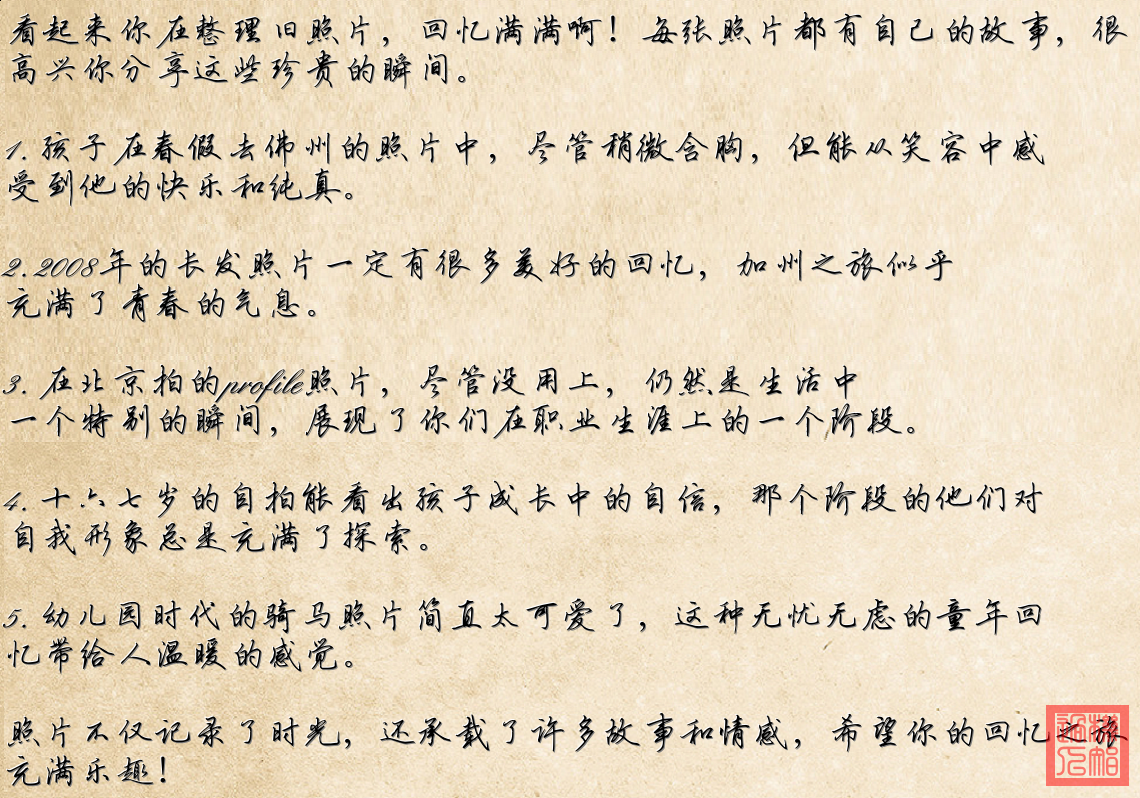 看起来你在整理旧照片，回忆满满啊！每张照片都有自己的故事，很
高兴你分享这些珍贵的瞬间。
1. 孩子在春假去佛州的照片中，尽管稍微含胸，但能从笑容中感
受到他的快乐和纯真。
2. 2008年的长发照片一定有很多美好的回忆，加州之旅似乎
充满了青春的气息。
3. 在北京拍的profile照片，尽管没用上，仍然是生活中
一个特别的瞬间，展现了你们在职业生涯上的一个阶段。
4. 十六七岁的自拍能看出孩子成长中的自信，那个阶段的他们对
自我形象总是充满了探索。
5. 幼儿园时代的骑马照片简直太可爱了，这种无忧无虑的童年回
忆带给人温暖的感觉。
照片不仅记录了时光，还承载了许多故事和情感，希望你的回忆之旅
充满乐趣！